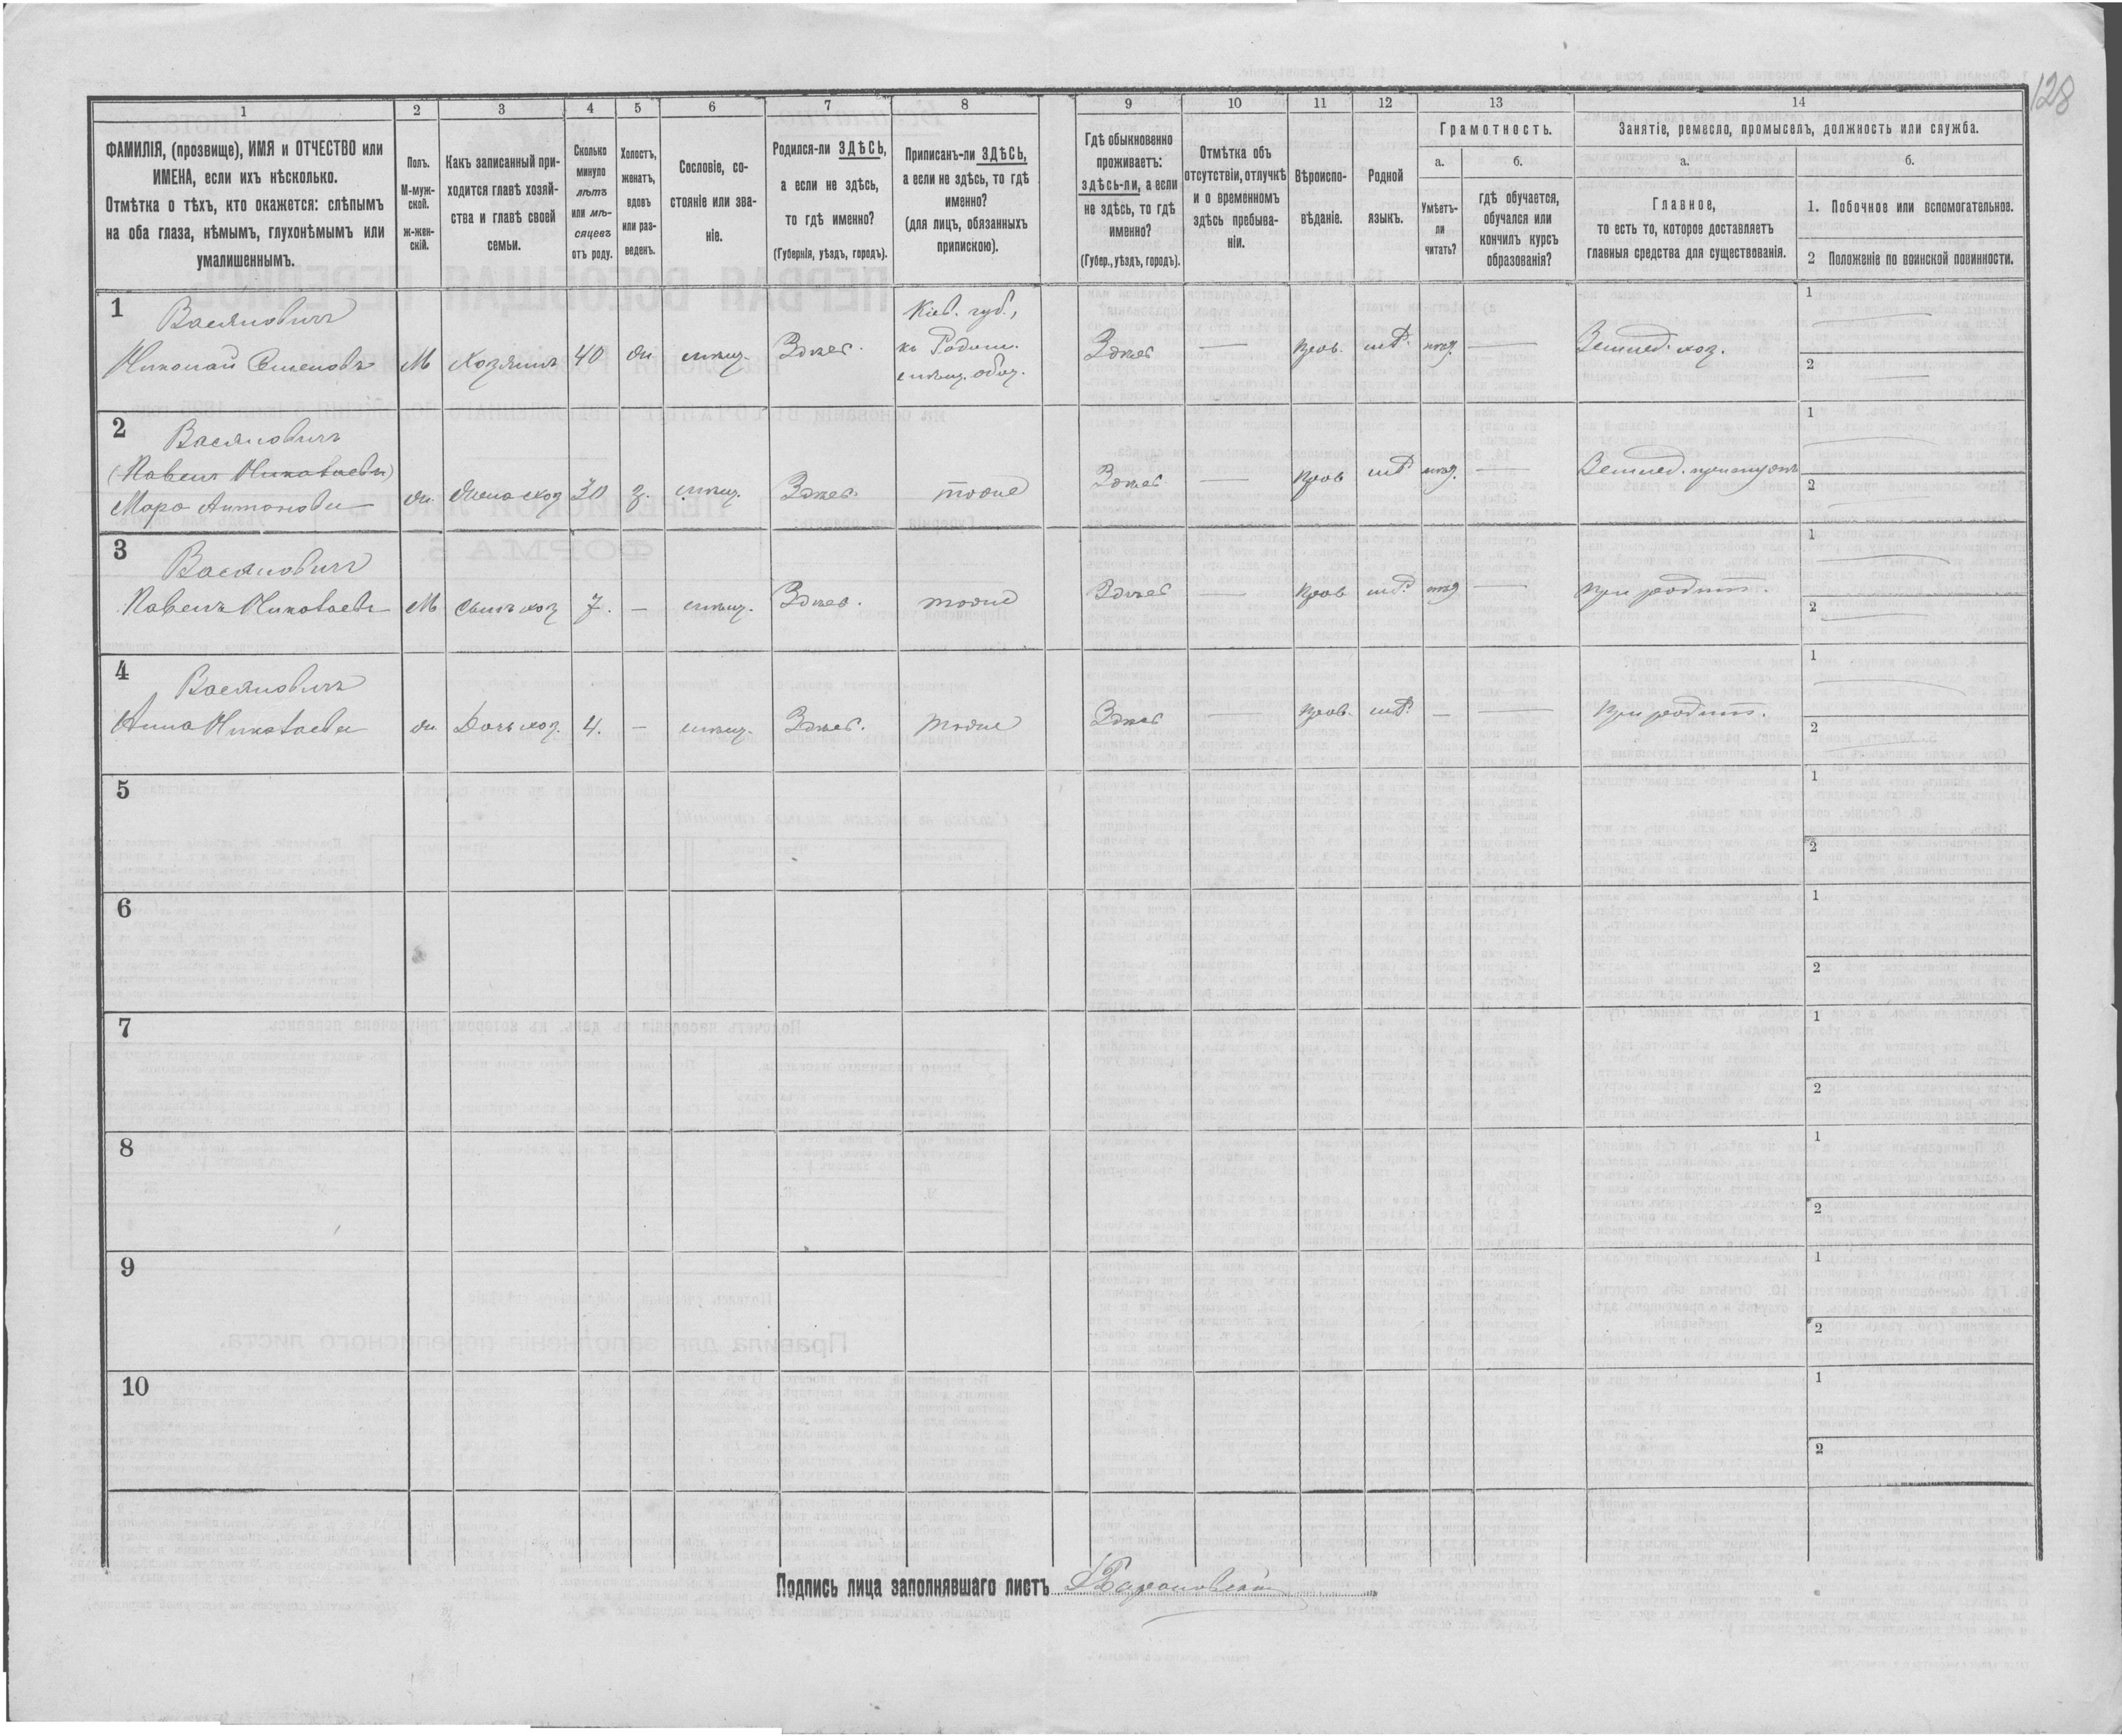 128
1
2
3
4
5
6
7
8
9
10
11
12
13
14
ФАМИЛІЯ, (прозвище), ИМЯ и ОТЧЕСТВО или
ИМЕНА, если ихъ нѣсколько.
Отмѣтка о тѣхъ, кто окажется: слѣпымъ
на оба глаза, нѣмымъ, глухонѣмымъ или
умалишеннымъ.
Полъ.
М-муж-
ской.
ж-жен-
скій.
Какъ записанный при-
ходится главѣ хозяй-
ства и главѣ своей
семьи.
Сколько
минуло
лѣтъ
или мѣ-
сяцевъ
отъ роду.
Холостъ,
женатъ,
вдовъ
или раз-
веденъ.
Сословіе, со-
стояніе или зва-
ніе.
Родился-ли ЗДѢСЬ,
а если не здѣсь,
то гдѣ именно?
(Губернія, уѣздъ, городъ).
Приписанъ-ли ЗДѢСЬ,
а если не здѣсь, то гдѣ
именно?
(для лицъ, обязанныхъ
припискою).
Гдѣ обыкновенно
проживаетъ:
здѣсь-ли, а если
не здѣсь, то гдѣ
именно?
(Губер., уѣздъ, городъ).
Отмѣтка объ
отсутствіи, отлучкѣ
и о временномъ
здѣсь пребыва-
ніи.
Вѣроиспо-
вѣданіе.
Родной
языкъ.
Грамотность.
а.
б.
Умѣетъ-
ли
читать?
гдѣ обучается,
обучался или
кончилъ курсъ
образованія?
Занятіе, ремесло, промыселъ, должность или служба.
а.
б.
Главное,
то есть то, которое доставляетъ
главныя средства для существованія.
1. Побочное или вспомогательное.
2 Положеніе по воинской повинности.
1
Васяновичъ
Николай Семеновъ
М
Хозяинъ
40
ж.
Здѣсь.
Кіев. губ.,
Здѣсь
Прав.
Землед. хоз.
1
2
2
Васяновичъ
(Павелъ Николаевъ)
Антонова
ж.
Жена хоз
30
з.
Здѣсь.
тоже
Здѣсь
Прав
Землед.
1
2
3
Васяновичъ
Павелъ Николаевъ
М
Сынъ хоз
7.
—
Здѣсь.
тоже
Здѣсь
Прав
при родит.
1
2
4
Васяновичъ
Анна Николаева
ж.
Дочь хоз.
4.
—
Здѣсь.
тоже
Здѣсь
Прав.
—
При родит.
1
2
5
1
2
6
1
2
7
1
2
8
1
2
9
1
2
10
1
2
Подпись лица заполнявшаго листъ